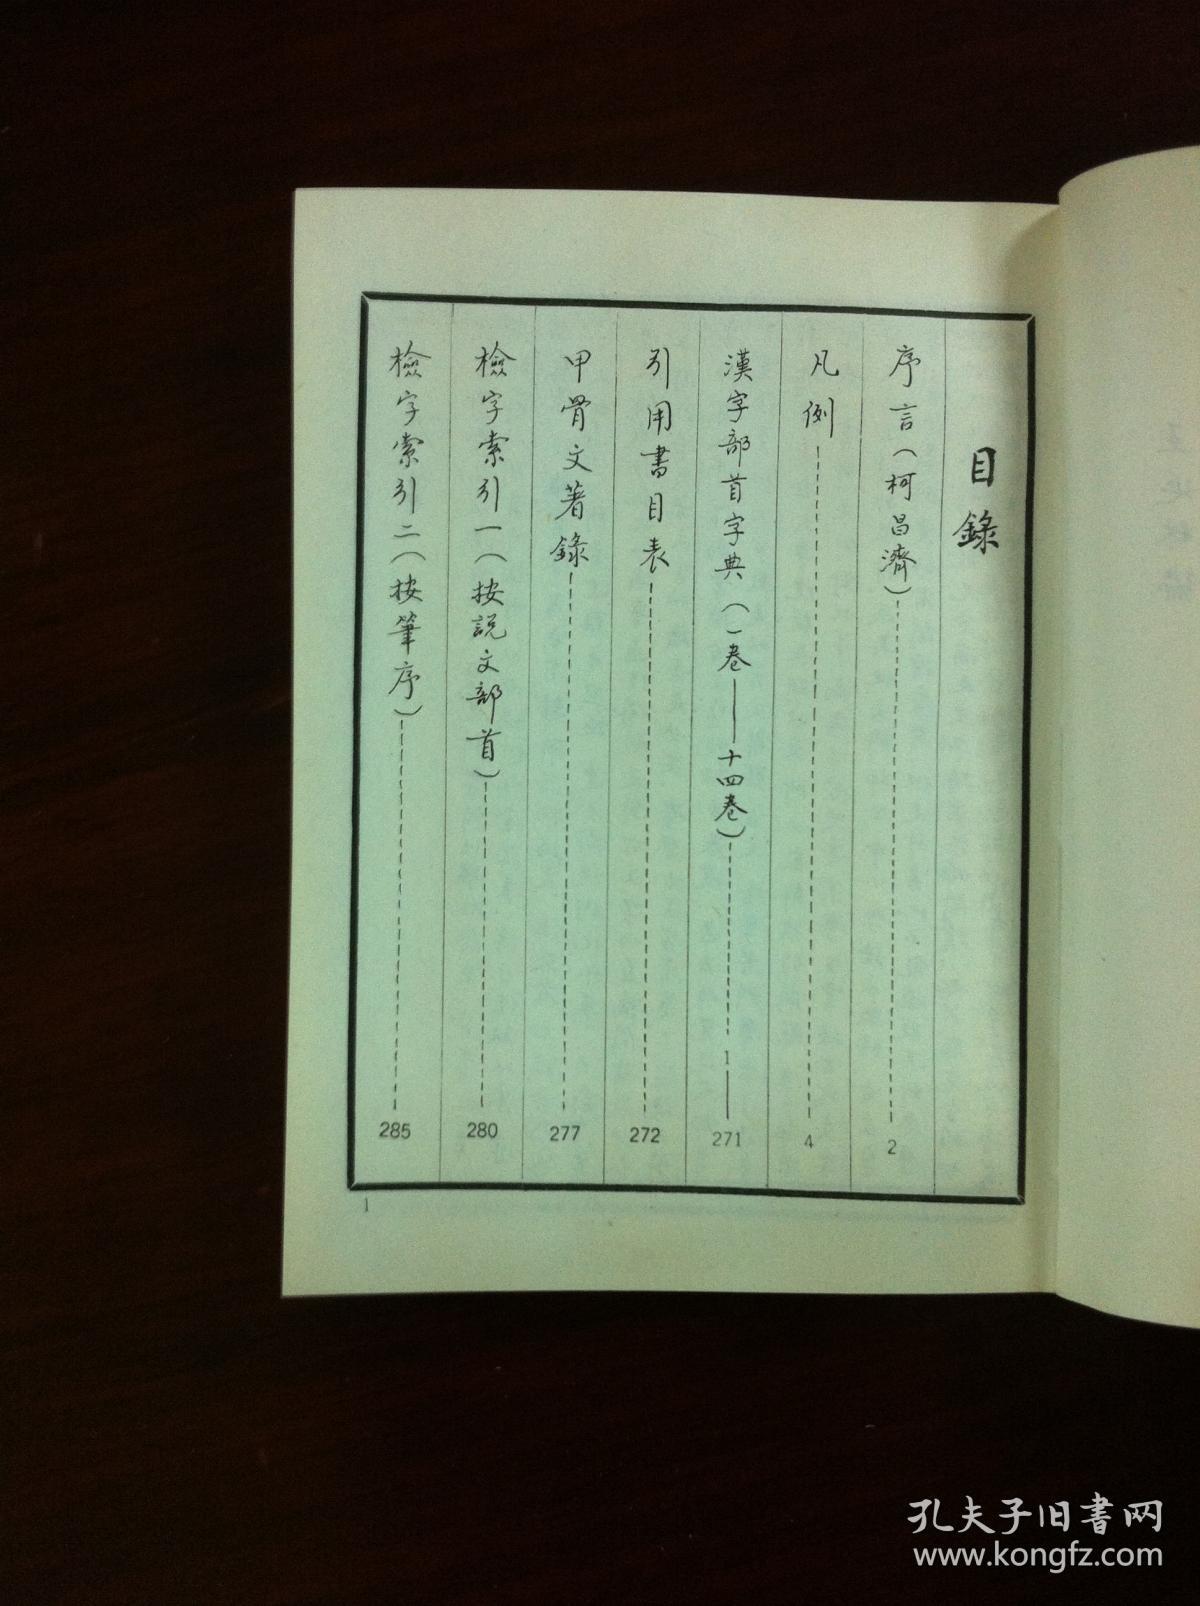 目錄
序言(柯昌濟)------2
凡例------4
漢字部首字典(一卷——十四卷)------1——271
引用書目表------272
甲骨文著錄------277
檢字索引一(按説文部首)------280
檢字索引二(按筆序)------285
1
孔夫子旧书网
www.kongfz.com